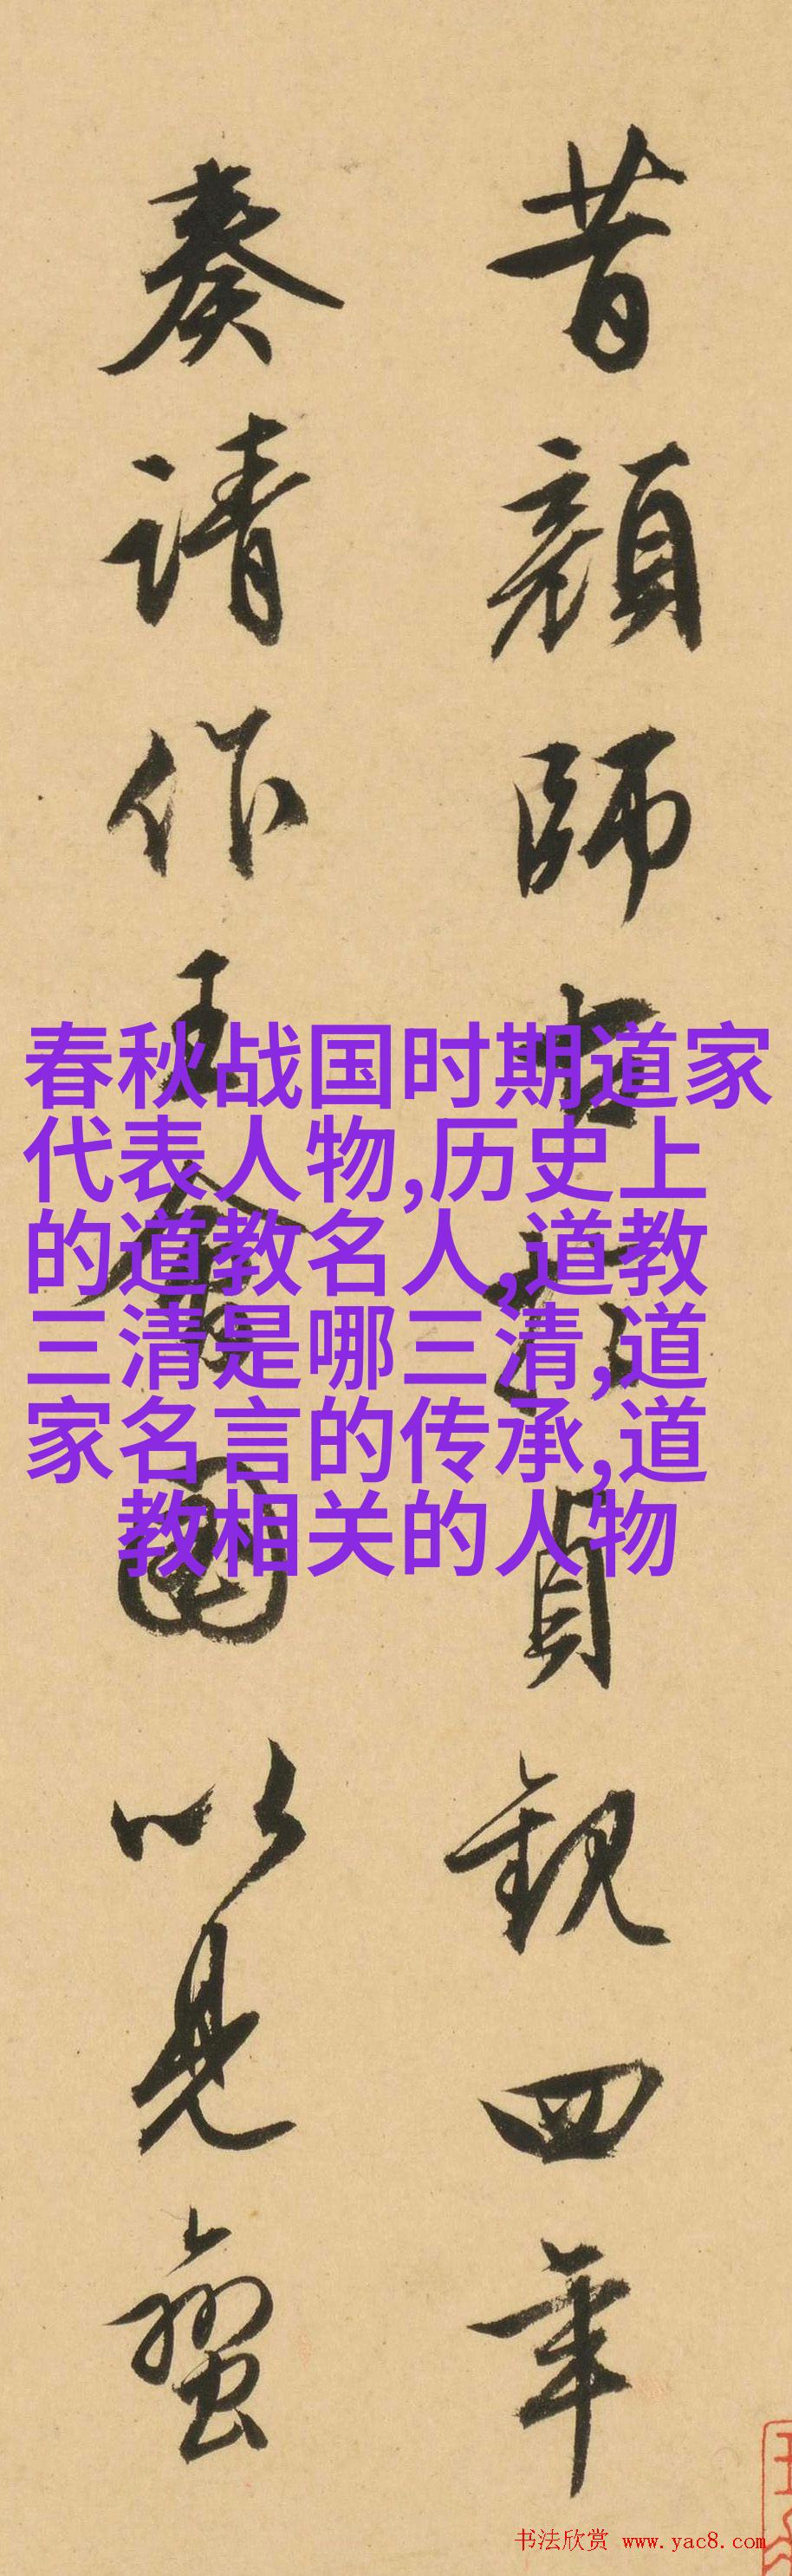 昔顏師古貞觀四年
奏請作王會圖以見蠻
春秋战国时期道家
代表人物,历史上
的道教名人,道教
三清是哪三清,道
家名言的传承,道
教相关的人物
书法欣赏 www.yac8.com